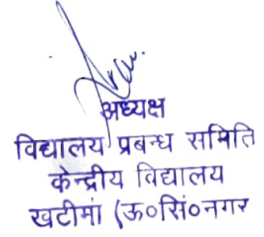 अध्यक्ष
विद्यालय प्रबन्ध समिति
केन्द्रीय विद्यालय
खटीमा (ऊ०सिं०नगर